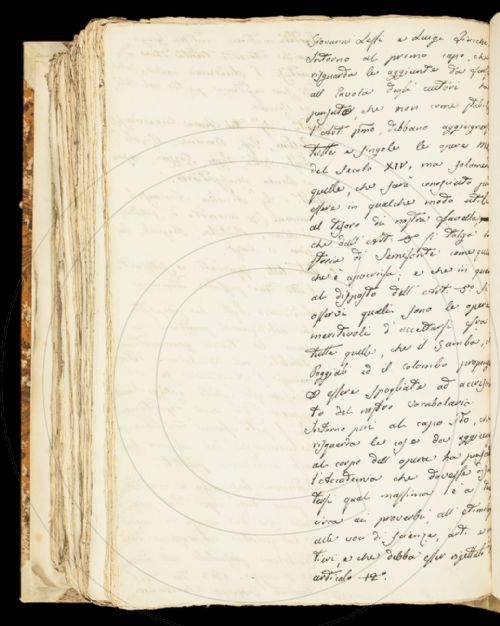 Giovanni Lessi e Luigi
Intorno al primo capo, che
risguarda le aggiunte da
all Tavola degli autori ha
pensato, che non come
l'Art. pmo, debbano aggiugner
tutte e singole le opere
del Secolo XIV, ma solamen
quelle, che sarà conosciuto
essere in qualche modo utile
al tesoro di nostra favella
che dall'Art. si tolga la
storia di Semifonte come
che è apocrifa; e che in
al disposto dell'Art. 5º si
osservi quali sono le opere
meritevoli d'accettarsi fra
tutte quelle, che il Gamba, il
Poggiali ed il Colombo propong
essere spogliate ad accresci
to del nostro vocabolario
Intorno poi al capo IIº, che
risguarda le cose da aggiun
al corpo dell'opera ha pensat
l'Accademia che dovesse
tersi qual massima è a
circa ai proverbi, all'etimo
alle voci di scienze, arti e
tieri, e che debba esser rigettato
articolo 12º.